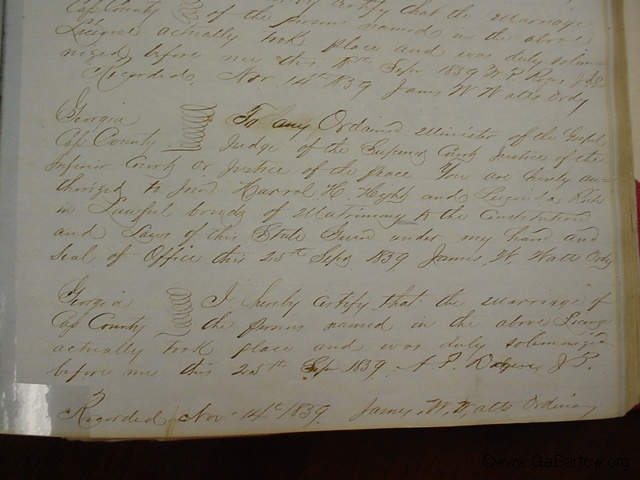 Cass County of the persons named in the above
License actually took place and was duly solem=
nized before me this 18th Sept 1839 W. P. Ross J.P.
Recorded Nov 14th 1839 James W Watts Ordy
Georgia To any Ordained Minister of the Gospel
Cass County Judge of the Superior Court Justice of the
Inferior Court or Justice of the peace You are hereby au=
thorized to Join Harrol H Hight and Lucinda
in Lawful bonds of Matrimony to the Constitution
and Laws of this State Given under my hand and
Seal of Office this 25th Sept 1839 James W Watts Ordy
Georgia I hereby certify that the Marriage of
Cass County the persons named in the above License
actually took place and was duly solemnized
before me this 25th Sept 1839. A. P. J.P.
Recorded Nov 14th 1839. James W. Watts Ordinary
©www.GaBartow.org